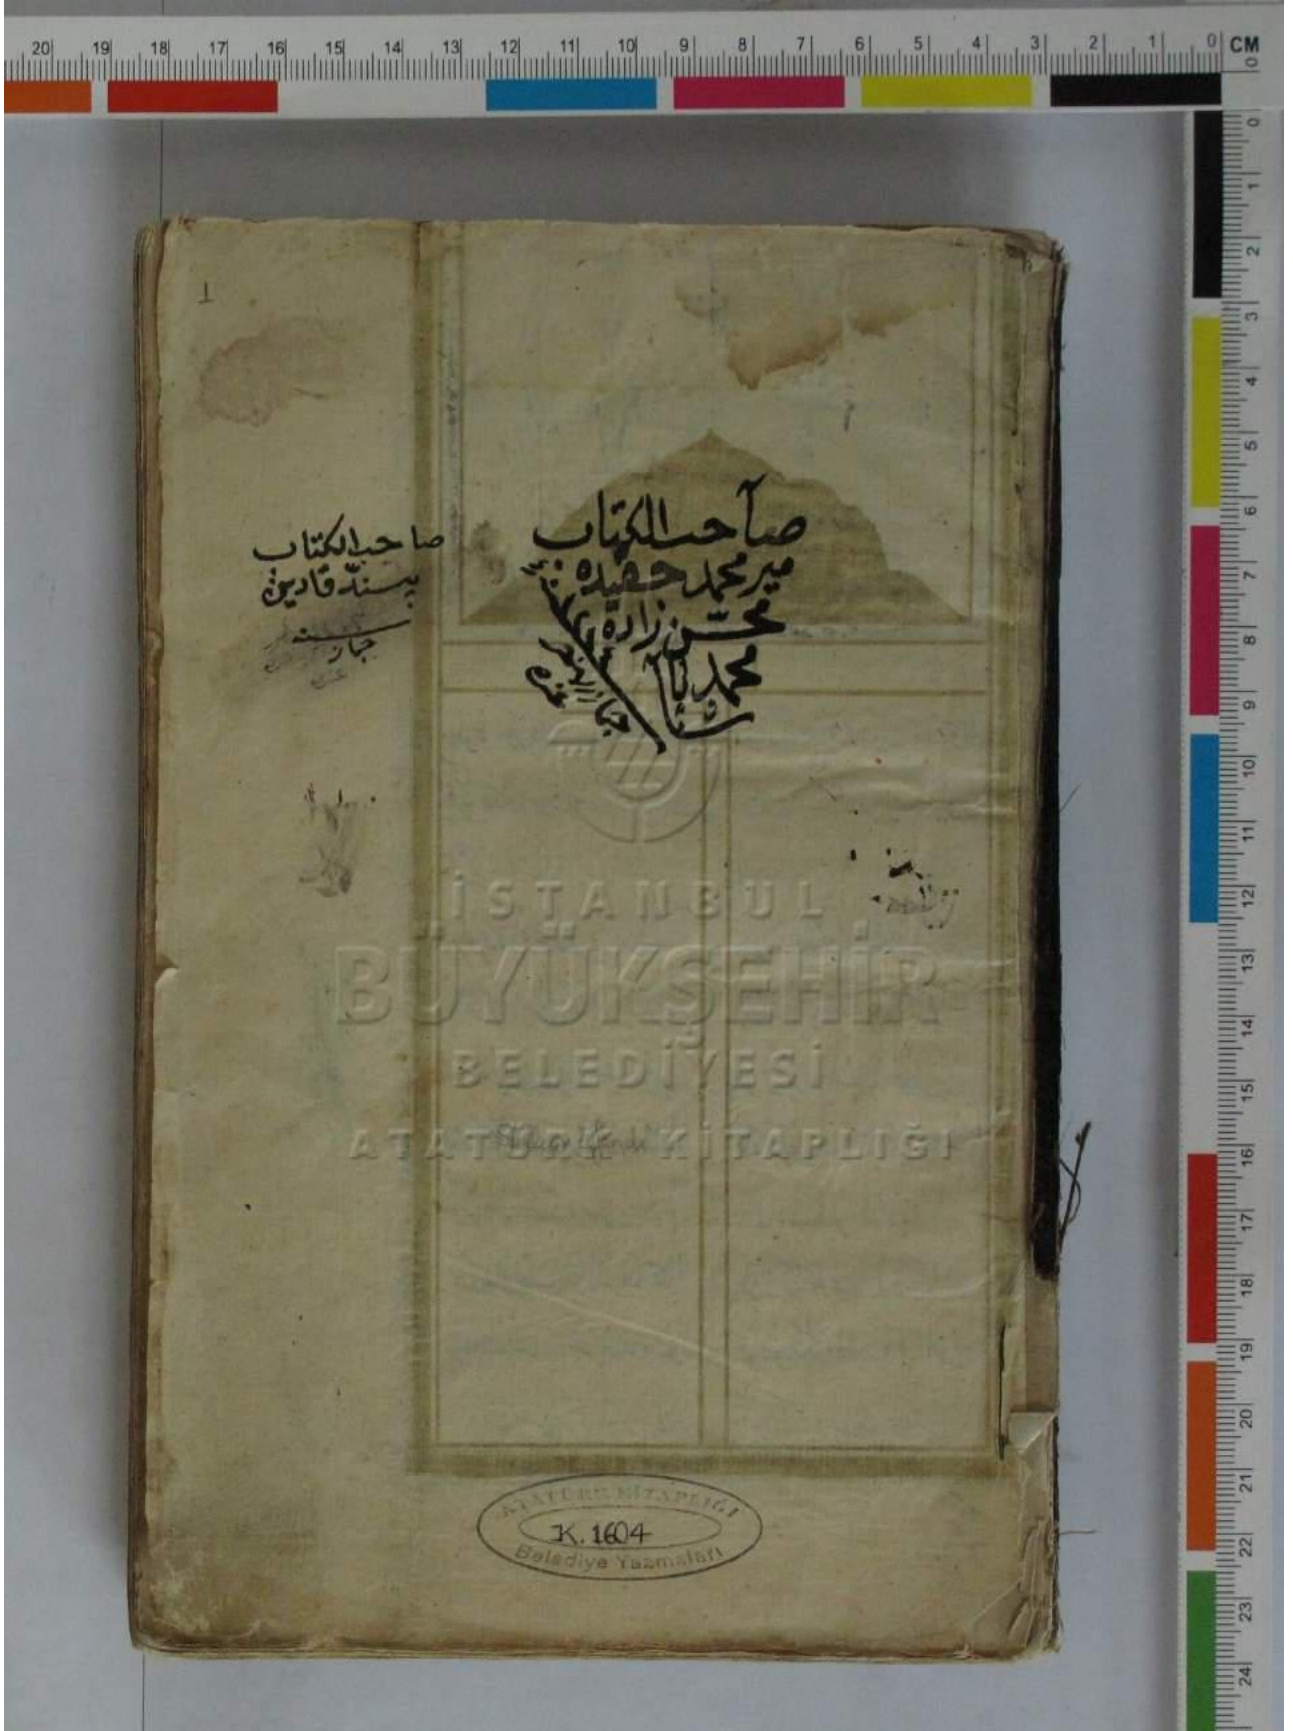 20 19 18 17 16 15 14 13 12 11 10 9 8 7 6 5 4 3 2 1 0 CM
0 1 2 3 4 5 6 7 8 9 10 11 12 13 14 15 16 17 18 19 20 21 22 23 24
1
صاحب الكتاب
مير محمد حفيده
محسن زاده
محمد پاشا
صاحب الكتاب
پسند قادين
İSTANBUL
BÜYÜKŞEHİR
BELEDİYESİ
ATATÜRK KİTAPLIĞI
ATATÜRK KİTAPLIĞI
K. 1604
Belediye Yazmaları